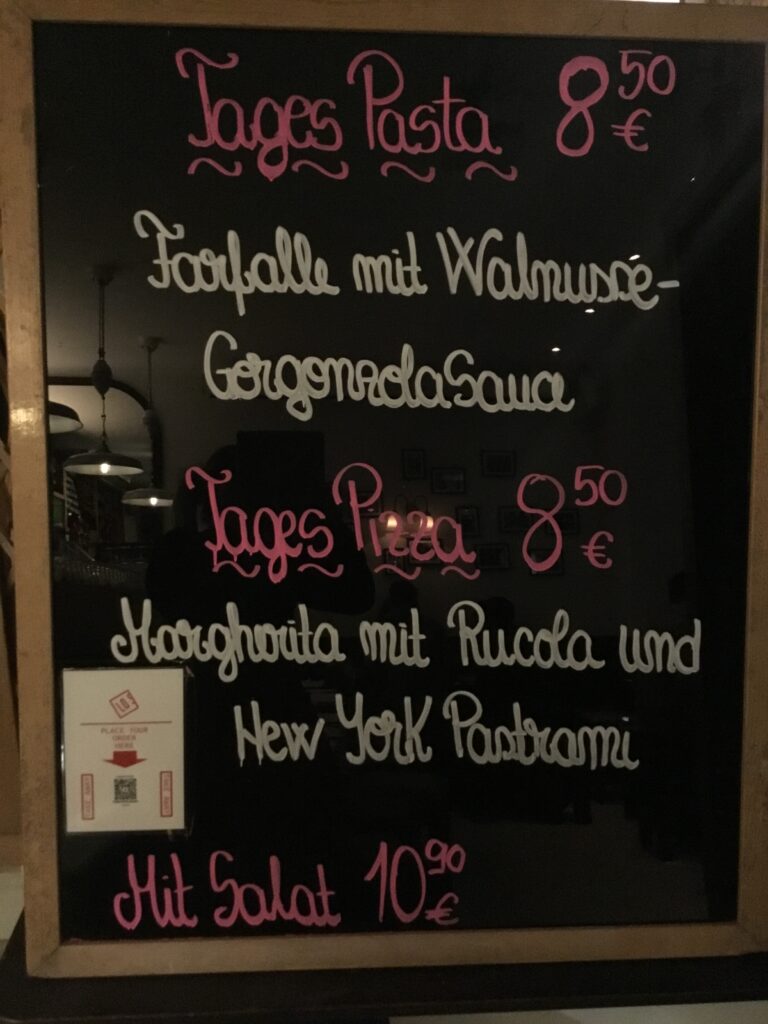 Tages Pasta 8⁵⁰ €
Farfalle mit Walnusse-
Gorgonzola Sauce
Tages Pizza 8⁵⁰ €
Margharita mit Rucola und
New York Pastrami
PLACE YOUR
ORDER
HERE
Mit Salat 10⁹⁰ €